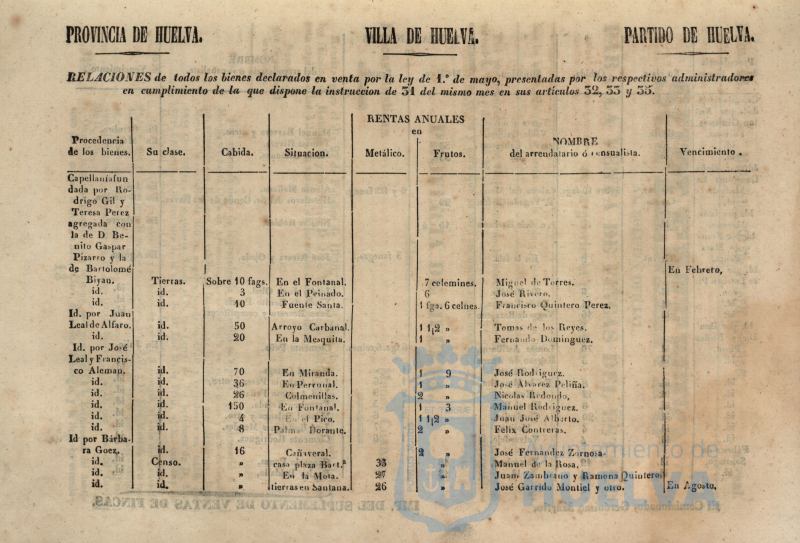 PROVINCIA DE HUELVA. VILLA DE HUELVA. PARTIDO DE HUELVA.
RELACIONES de todos los bienes declarados en venta por la ley de 1.º de mayo, presentadas por los respectivos administradores
en cumplimiento de la que dispone la instruccion de 31 del mismo mes en sus artículos 32, 33 y 35.
RENTAS ANUALES
en
Procedencia de los bienes. Su clase. Cabida. Situacion. Metálico. Frutos. NOMBRE del arrendatario ó censualista. Vencimiento.
Capellaníafun
dada por Ro-
drigo Gil y
Teresa Perez
agregada con
la de D. Be-
nito Gaspar
Pizarro y la
de Bartolomé En Febrero,
Biyau. Tierras. Sobre 10 fags. En el Fontanal. 7 celemines. Miguel de Torres.
id. id. 3 En el Peinado. 6 José Rivero.
id. id. 10 Fuente Santa. 1 fga. 6 celnes. Francisco Quintero Perez.
Id. por Juan
Leal de Alfaro. id. 50 Arroyo Carbanal. 1 1|2 » Tomas de los Reyes.
id. id. 20 En la Mesquita. 1 » Fernando Dominguez.
Id. por José
Leal y Francis-
co Aleman. id. 70 En Miranda. 1 9 José Rodriguez.
id. id. 36 En 1 » José Alvarez Peliña.
id. id. 26 Colmenillas. 2 » Nicolas Redondo,
id. id. 150 En Fontanal. 1 3 Manuel Rodriguez.
id. id. 4 En el Pico. 1 1|2 » Juan José Alberto.
id. id. 8 Palma Dorante. 2 » Felix Contreras.
Id por Bárba-
ra Goez. id. 16 Cañaveral. 2 » José Fernandez Zarnosa
id. Censo. » casa plaza Bart.ª 33 » Manuel de la Rosa,
id. id. » En la Mota. 27 » Juan Zambrano y Ramona Quintero
id. id. » tierras en Santana. 26 » José Garrido Montiel y otro. En Agosto,
Ayuntamiento de
HUELVA